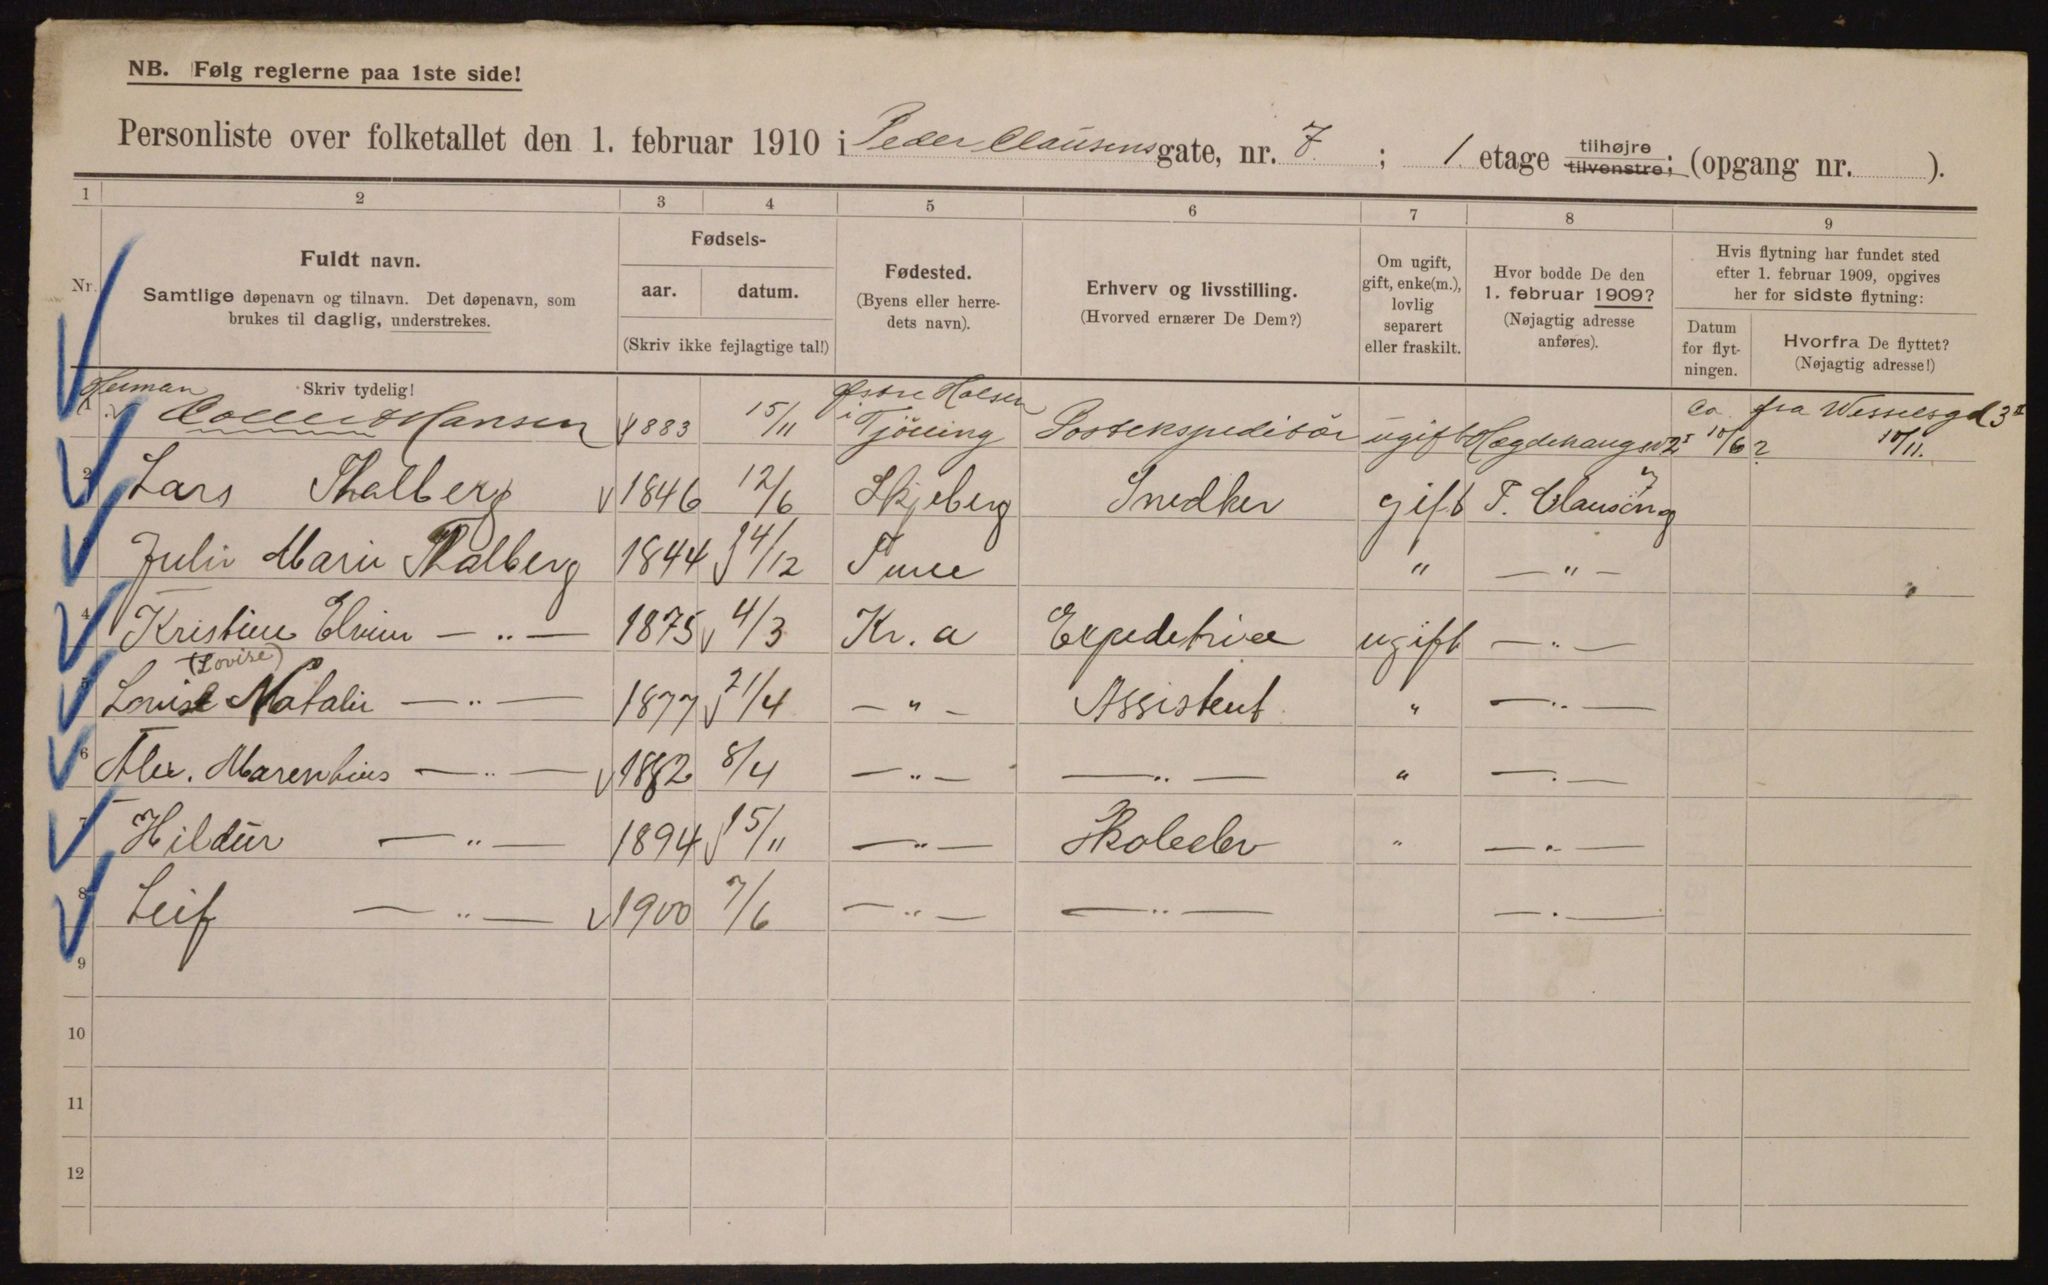 NB. Følg reglerne paa 1ste side!
Personliste over folketallet den 1. februar 1910 i Peder Clausens gate, nr. 7 ; 1 etage tilhøjre tilvenstre; (opgang nr. ).
1 2 3 4 5 6 7 8 9
Nr.
Fuldt navn.
Samtlige døpenavn og tilnavn. Det døpenavn, som
brukes til daglig, understrekes.
Skriv tydelig!
Fødsels-
aar. datum.
(Skriv ikke fejlagtige tal!)
Fødested.
(Byens eller herre-
dets navn).
Erhverv og livsstilling.
(Hvorved ernærer De Dem?)
Om ugift,
gift, enke(m.),
lovlig
separert
eller fraskilt.
Hvor bodde De den
1. februar 1909?
(Nøjagtig adresse
anføres).
Hvis flytning har fundet sted
efter 1. februar 1909, opgives
her for sidste flytning:
Datum
for flyt-
ningen.
Hvorfra De flyttet?
(Nøjagtig adresse!)
Herman Østre Halsen Ca. fra Wesselsgd 3 II
1 Hansen 1883 15/11 i Tjölling Postekspeditör ugift 10/6 ? 10/11.
2 Lars Thalberg 1846 12/6 Skjeberg Snedker gift P. Clausensg 7
3 Julie Marie Thalberg 1844 14/12 Tune " — " —
4 Kristine Elvine — " — 1875 4/3 Kr. a Expeditrice ugift — " —
(Lovise)
5 Louise Natalie — " — 1877 21/4 — " — Assistent " — " —
6 Alex. Marentius — " — 1882 8/4 — " — — " — " — " —
7 Hildur — " — 1894 15/11 — " — Skoleelev " — " —
8 Leif — " — 1900 7/6 — " — — " — — " —
9
10
11
12